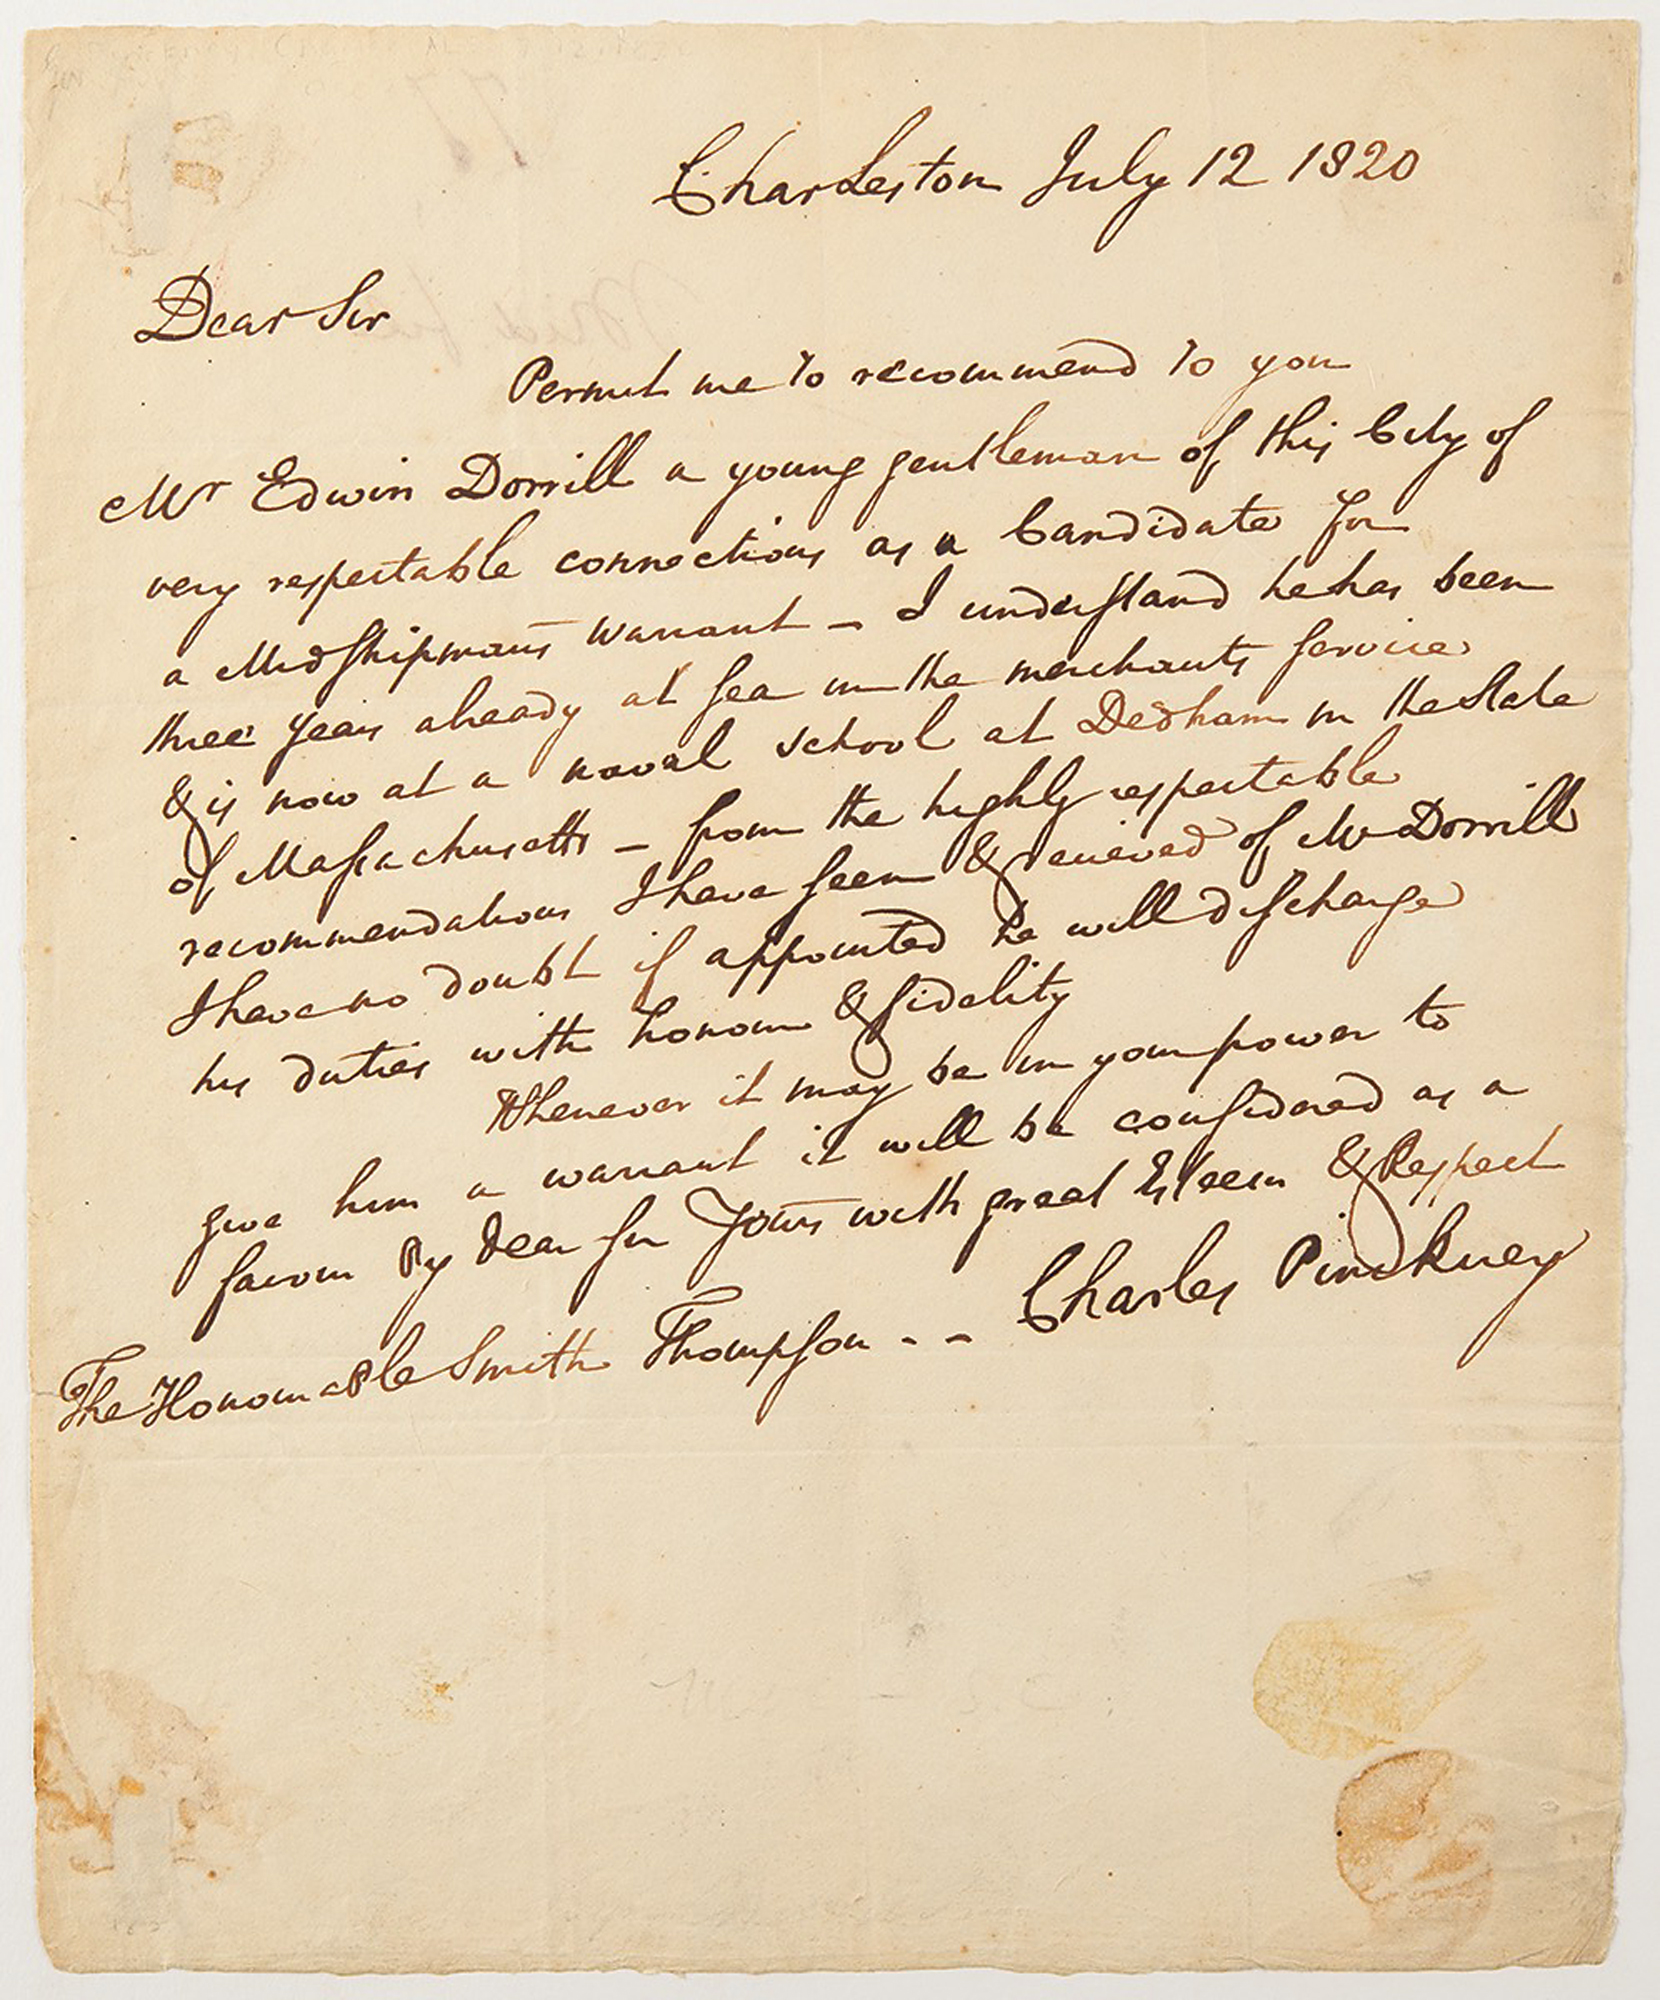 Charleston July 12 1820
Dear Sir
Permit me to recommend to you
Mr Edwin Dorrill a young gentleman of this City of
very respectable connections as a Candidate for
a Midshipman's warrant – I understand he has been
three years already at sea in the merchants service
& is now at a naval school at Dedham in the State
of Massachusetts – from the highly respectable
recommendations I have seen & recieved of Mr Dorrill
I have no doubt if appointed he will discharge
his duties with honour & fidelity
Whenever it may be in your power to
give him a warrant it will be considered as a
favour By dear Sir Yours with great Esteem & Respect
Charles Pinckney
The Honourable Smith Thompson - -